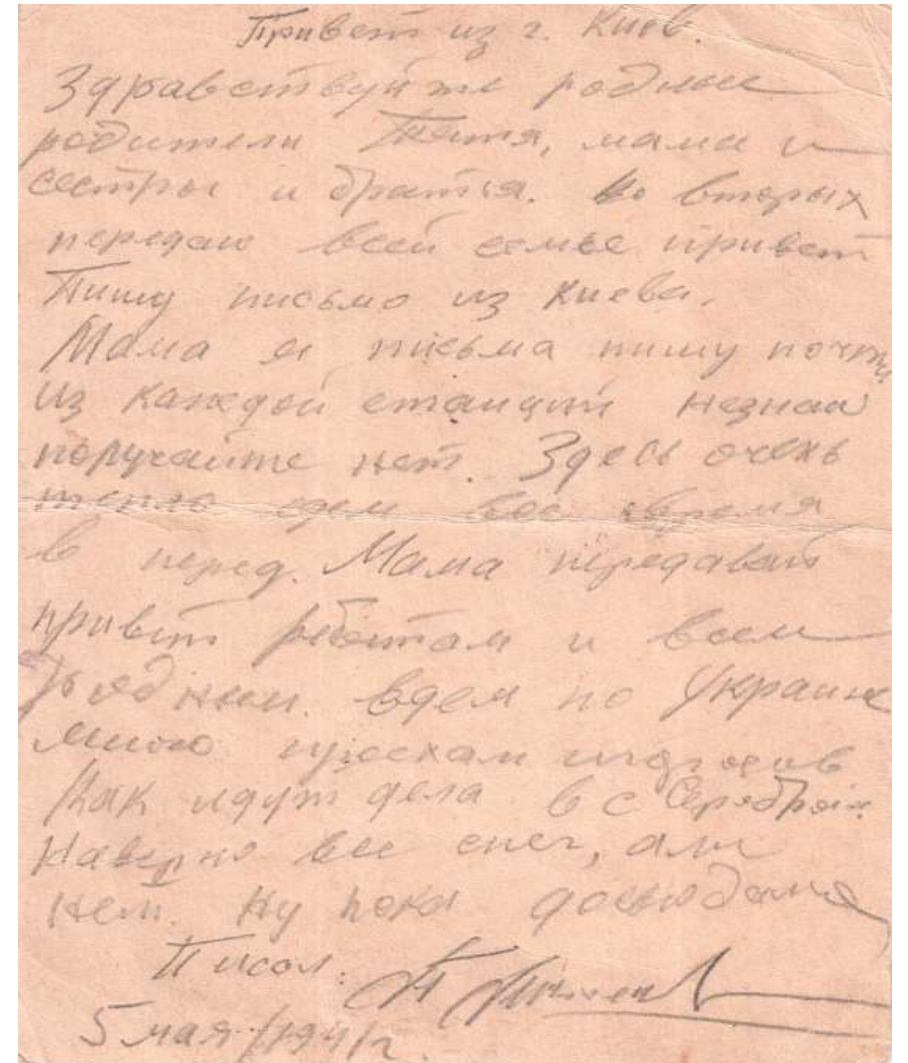 Привет из г. Киев.
Здравствуйте родные
родители Тятя, мама и
сестры и братья. Во вторых
передаю всей семье привет
Пишу письмо из Киева.
Мама я письма пишу почти
из каждой станций незнаю
получайте нет. Здесь очень
тепло едем все время
в перед. Мама передавай
привет ребятам и всем
родным. едем по Украине
много
Как идут дела в с Серебрян
Наверно все снег, али
нет. Ну пока досвидания
Писал. П
5 мая /1941 г.